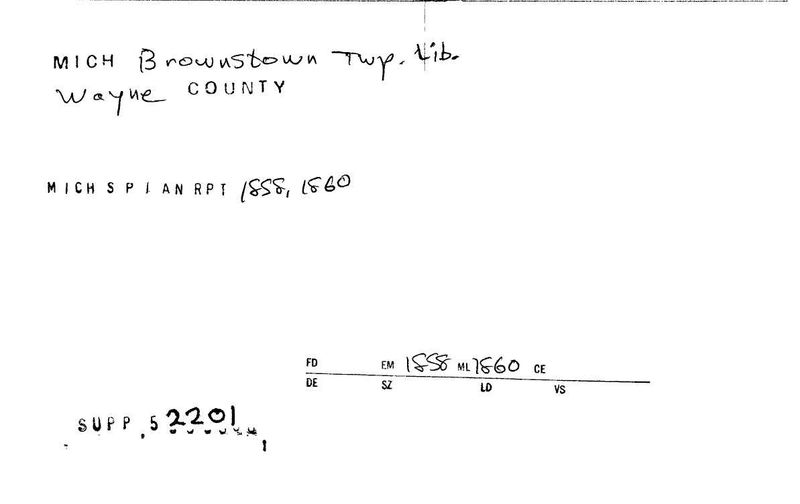 MICH Brownstown Twp. Lib.
Wayne COUNTY
MICH S P I AN RPT 1858, 1860
FD EM 1858 ML 1860 CE
DE SZ LD VS
SUPP. 5 2201